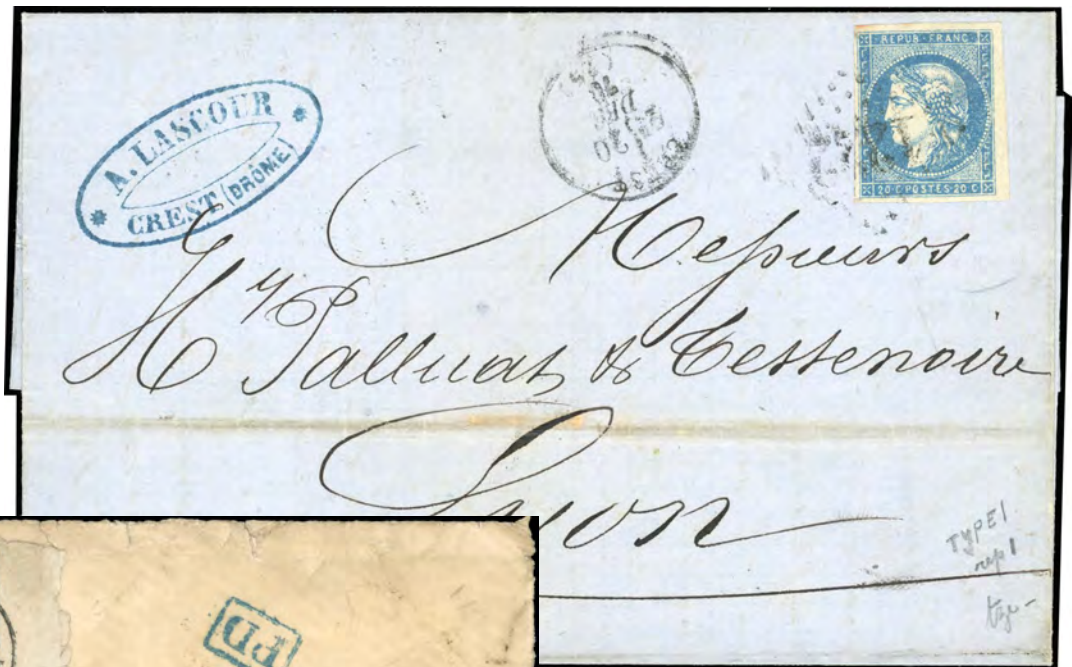 A. LASCOUR
CREST (DRÔME)
CREST
20
DEC
70
(25)
REPUB · FRANC
20 C POSTES 20 C
Messieurs
Hy Palluat & Testenoire
Lyon
TYPE I
rep I
PD